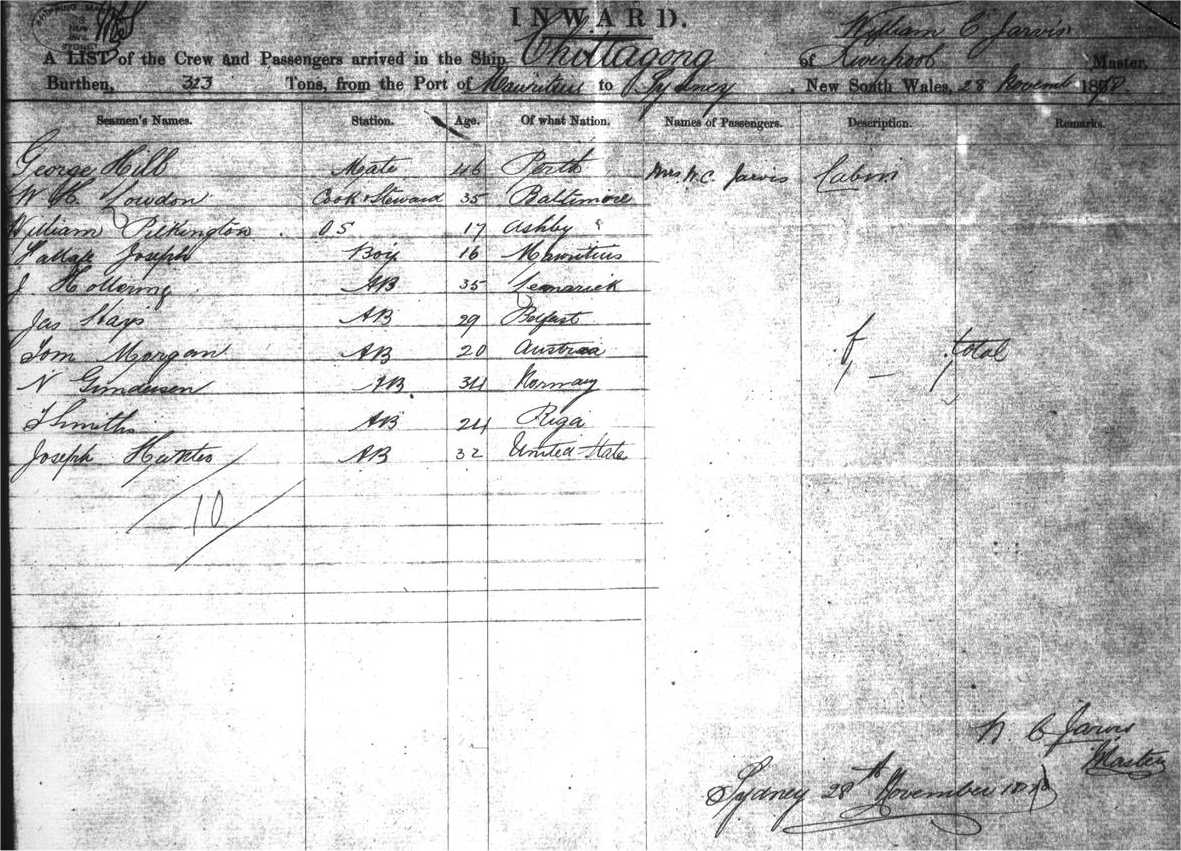 INWARD.
William C Jarvis
A LIST of the Crew and Passengers arrived in the Ship Chittagong of Liverpool Master,
Burthen, 323 Tons, from the Port of Mauritius to Sydney, New South Wales, 28 Novemb 1878
Seamen's Names. Station. Age. Of what Nation. Names of Passengers. Description. Remarks.
George Hill Mate 46 Perth Mrs. W. C. Jarvis Cabin
W H Lowdon Cook & Steward 35 Baltimore
William Pilkington. O S 17 Ashby
Joseph Boy 16 Mauritius
J AB 35
Jas Hays AB 29 Belfast
Tom Morgan AB 20 Austria
N AB 34 Norway
total
Smith AB 24 Riga
Joseph AB 32 United States
10
W C Jarvis
Master
Sydney 28th November 1878